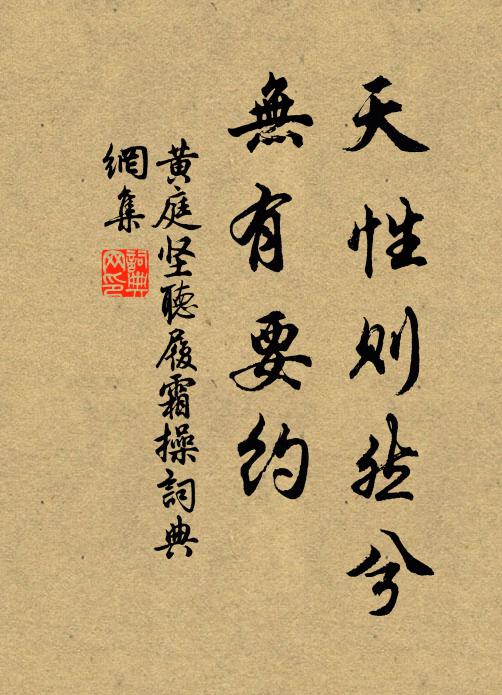 天性则然兮
無有要约
黄庭坚聽履霜操詞典
網集
詞典
网印